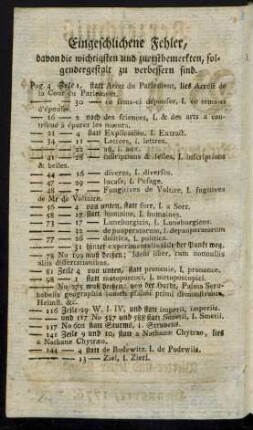 Eingeschlichene Fehler,
davon die wichtigsten und zuerstbemerkten, fol-
gendergestalt zu verbessern sind.
Pag 4 Zeile 1. statt Arret de Parlement, lies Arrest de
la Cour du Parlement.
— — 30 — ce sems-ci
d'épouse.
— 16 — 2 nach des sciences, l. & des arts a con-
tribué à épurer les mœurs.
— 21 — 4 statt Explication, l. Extract.
— 34 — 11 — Lettres, l. lettres.
— — — 22 — l. aux.
— 41 — 28 — inscriptions & belles, l. inscriptions
& belles.
— 44 — 16 — diveres, l. diverses.
— 47 — 29 — l. Passage.
— 48 — 7 — Fungitives de Voltire, l. fugitives
de Mr de Voltaire.
— 56 — 4 von unten, statt l. a Sorr.
— 58 — 17 statt humaine, l. humaines.
— 73 — 17 — Lunenburgiciis, l. Luneburgicis.
— — — 32 — depauperatarum, l. depauperatarum
— 77 — 26 — dolitica, l. politica.
— — — 31 hinter experimentalis der Punkt weg.
— 78 No 199 muß heißen: Idem liber, cum nonnullis
aliis dissertationibus.
— 81 Zeile 4 von unten, statt pronenie, l. pronome.
— 98 — 1 statt motaponci, l. metoposcopici.
— — No 275 muß heißen: von der Hardt, Palma Seru-
babelis geographia primi demonstratio,
Helmst. &c.
— 116 Zeile 29 W. l. IV, und statt imperti, imperii.
— — und 117 No 587 und 588 statt Smetii, l. Smetii,
— 117 No 601 statt Sturmi, l. Struvens.
— 141 Zeile 9 und 10, statt a Nathane Chytrao, lies
a Nathane Chytrao.
— 144 — 4 statt de Bodewitz, l. de Podewils.
— — — 13 — Ziel, l. Zierl.